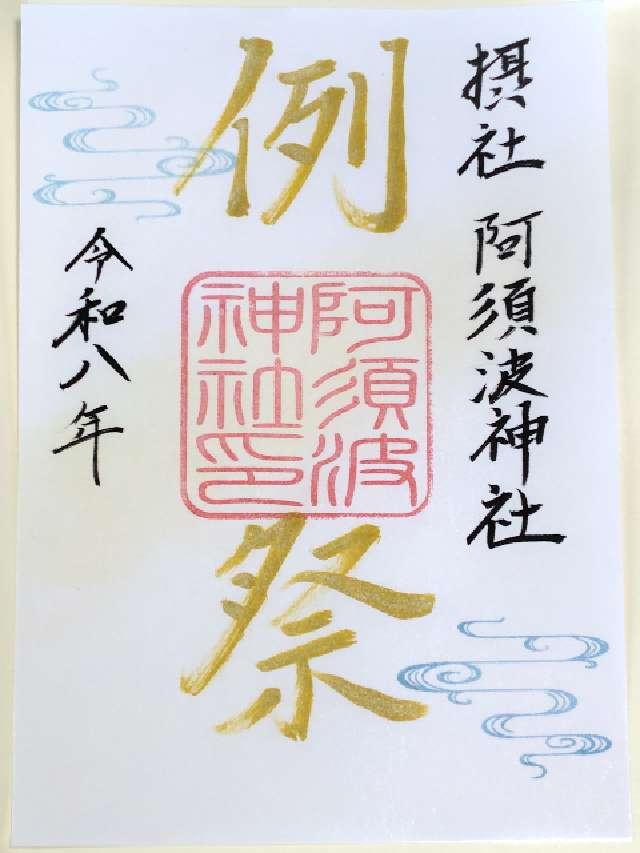 摂社 阿須波神社
例祭
阿須波
神社印
令和八年